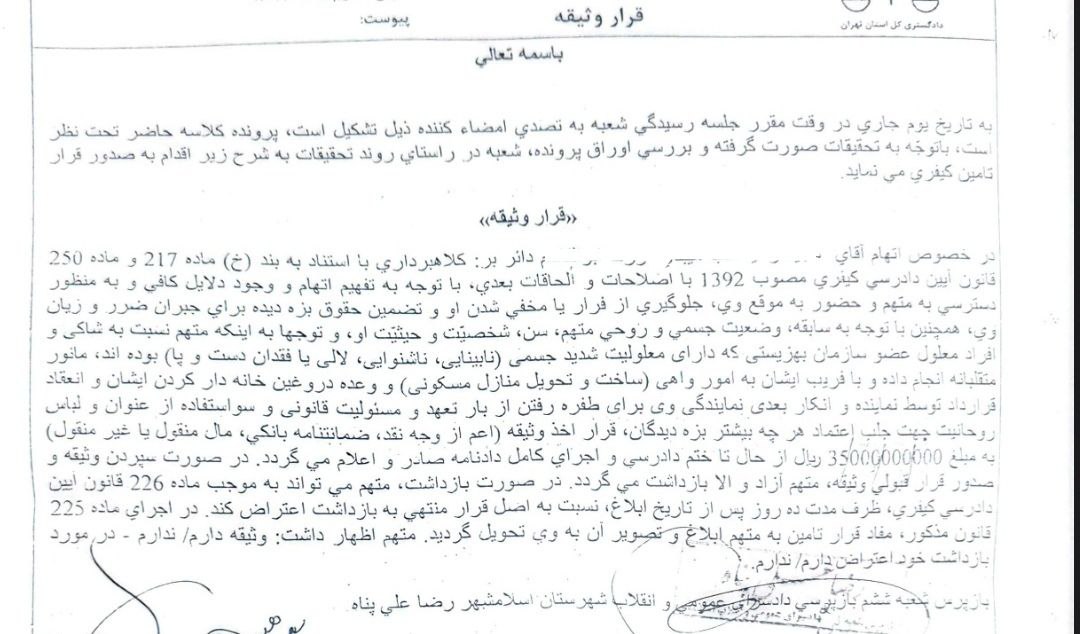 دادگستری کل استان تهران
قرار وثیقه
پیوست:
باسمه تعالي
به تاریخ یوم جاري در وقت مقرر جلسه رسیدگي شعبه به تصدي امضاء کننده ذیل تشکیل است، پرونده کلاسه حاضر تحت نظر
است، باتوجه به تحقیقات صورت گرفته و بررسي اوراق پرونده، شعبه در راستاي روند تحقیقات به شرح زیر اقدام به صدور قرار
تامین کیفري مي نماید.
«قرار وثیقه»
در خصوص اتهام آقاي دائر بر: کلاهبرداري با استناد به بند (خ) ماده 217 و ماده 250
قانون آیین دادرسي کیفري مصوب 1392 با اصلاحات و الحاقات بعدي، با توجه به تفهیم اتهام و وجود دلایل کافي و به منظور
دسترسي به متهم و حضور به موقع وي، جلوگیري از فرار یا مخفي شدن او و تضمین حقوق بزه دیده براي جبران ضرر و زیان
وي، همچنین با توجه به سابقه، وضعیت جسمي و روحي متهم، سن، شخصیت و حیثیت او، و توجها به اینکه متهم نسبت به شاکی و
افراد معلول عضو سازمان بهزیستی که دارای معلولیت شدید جسمی (نابینایی، ناشنوایی، لالی یا فقدان دست و پا) بوده اند، مانور
متقلبانه انجام داده و با فریب ایشان به امور واهی (ساخت و تحویل منازل مسکونی) و وعده دروغین خانه دار کردن ایشان و انعقاد
قرارداد توسط نماینده و انکار بعدی نمایندگی وی برای طفره رفتن از بار تعهد و مسئولیت قانونی و سواستفاده از عنوان و لباس
روحانیت جهت جلب اعتماد هر چه بیشتر بزه دیدگان، قرار اخذ وثیقه (اعم از وجه نقد، ضمانتنامه بانکي، مال منقول یا غیر منقول)
به مبلغ 35000000000 ریال از حال تا ختم دادرسي و اجراي کامل دادنامه صادر و اعلام مي گردد. در صورت سپردن وثیقه و
صدور قرار قبولي وثیقه، متهم آزاد و الا بازداشت مي گردد. در صورت بازداشت، متهم مي تواند به موجب ماده 226 قانون آیین
دادرسي کیفري، ظرف مدت ده روز پس از تاریخ ابلاغ، نسبت به اصل قرار منتهي به بازداشت اعتراض کند. در اجراي ماده 225
قانون مذکور، مفاد قرار تامین به متهم ابلاغ و تصویر آن به وي تحویل گردید. متهم اظهار داشت: وثیقه دارم/ ندارم - در مورد
بازداشت خود اعتراض دارم/ ندارم.
بازپرس شعبه ششم بازپرسي دادسراي عمومي و انقلاب شهرستان اسلامشهر رضا علي پناه